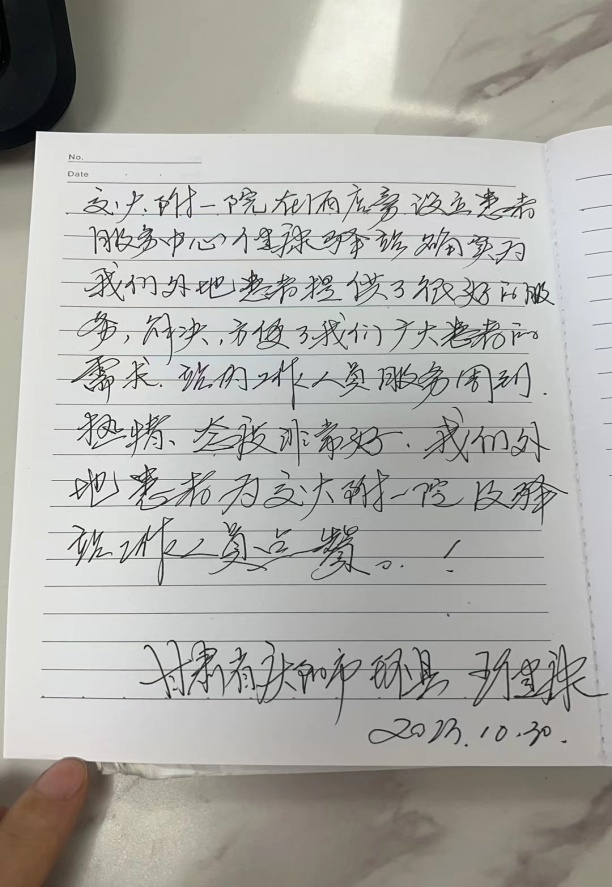 No.
Date
交大附一院在门西店旁设立患者
服务中心健康驿站确实为
我们外地患者提供了很好的服
务,解决,方便了我们广大患者的
需求.站内工作人员服务周到.
热情、态度非常好.我们外
地患者为交大附一院及驿
站工作人员点赞。!
甘肃省庆阳市环县
2023.10.30.